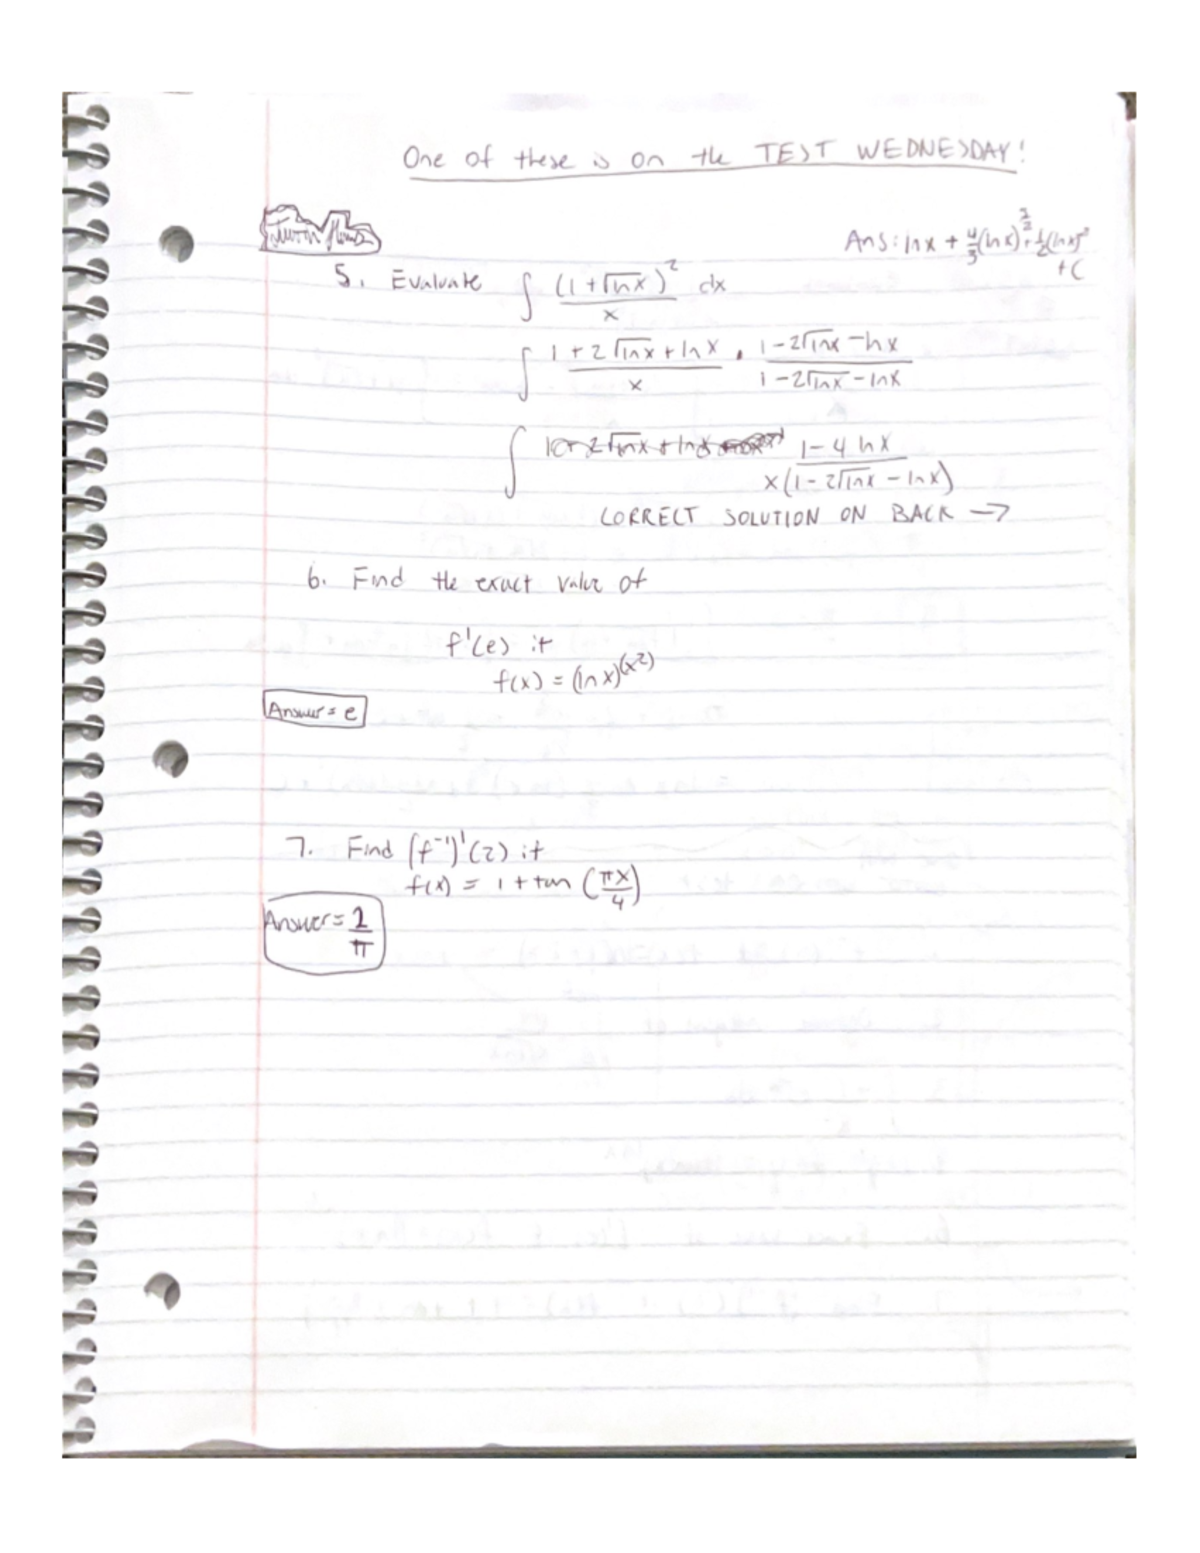 One of these is on the TEST WEDNESDAY!
Ans: lnx + 4/3(lnx)^3/2 + 1/2(lnx)^2
+ C
5. Evaluate ∫ (1+√lnx)^2/x dx
∫ 1+2√lnx+lnx/x · 1-2√lnx-lnx/1-2√lnx-lnx
∫ 1-4lnx/x(1-2√lnx-lnx)
CORRECT SOLUTION ON BACK →
6. Find the exact value of
f'(e) if
f(x) = (lnx)^(x^2)
Answer = e
7. Find (f^-1)'(2) if
f(x) = 1+tan(πx/4)
Answer = 2/π